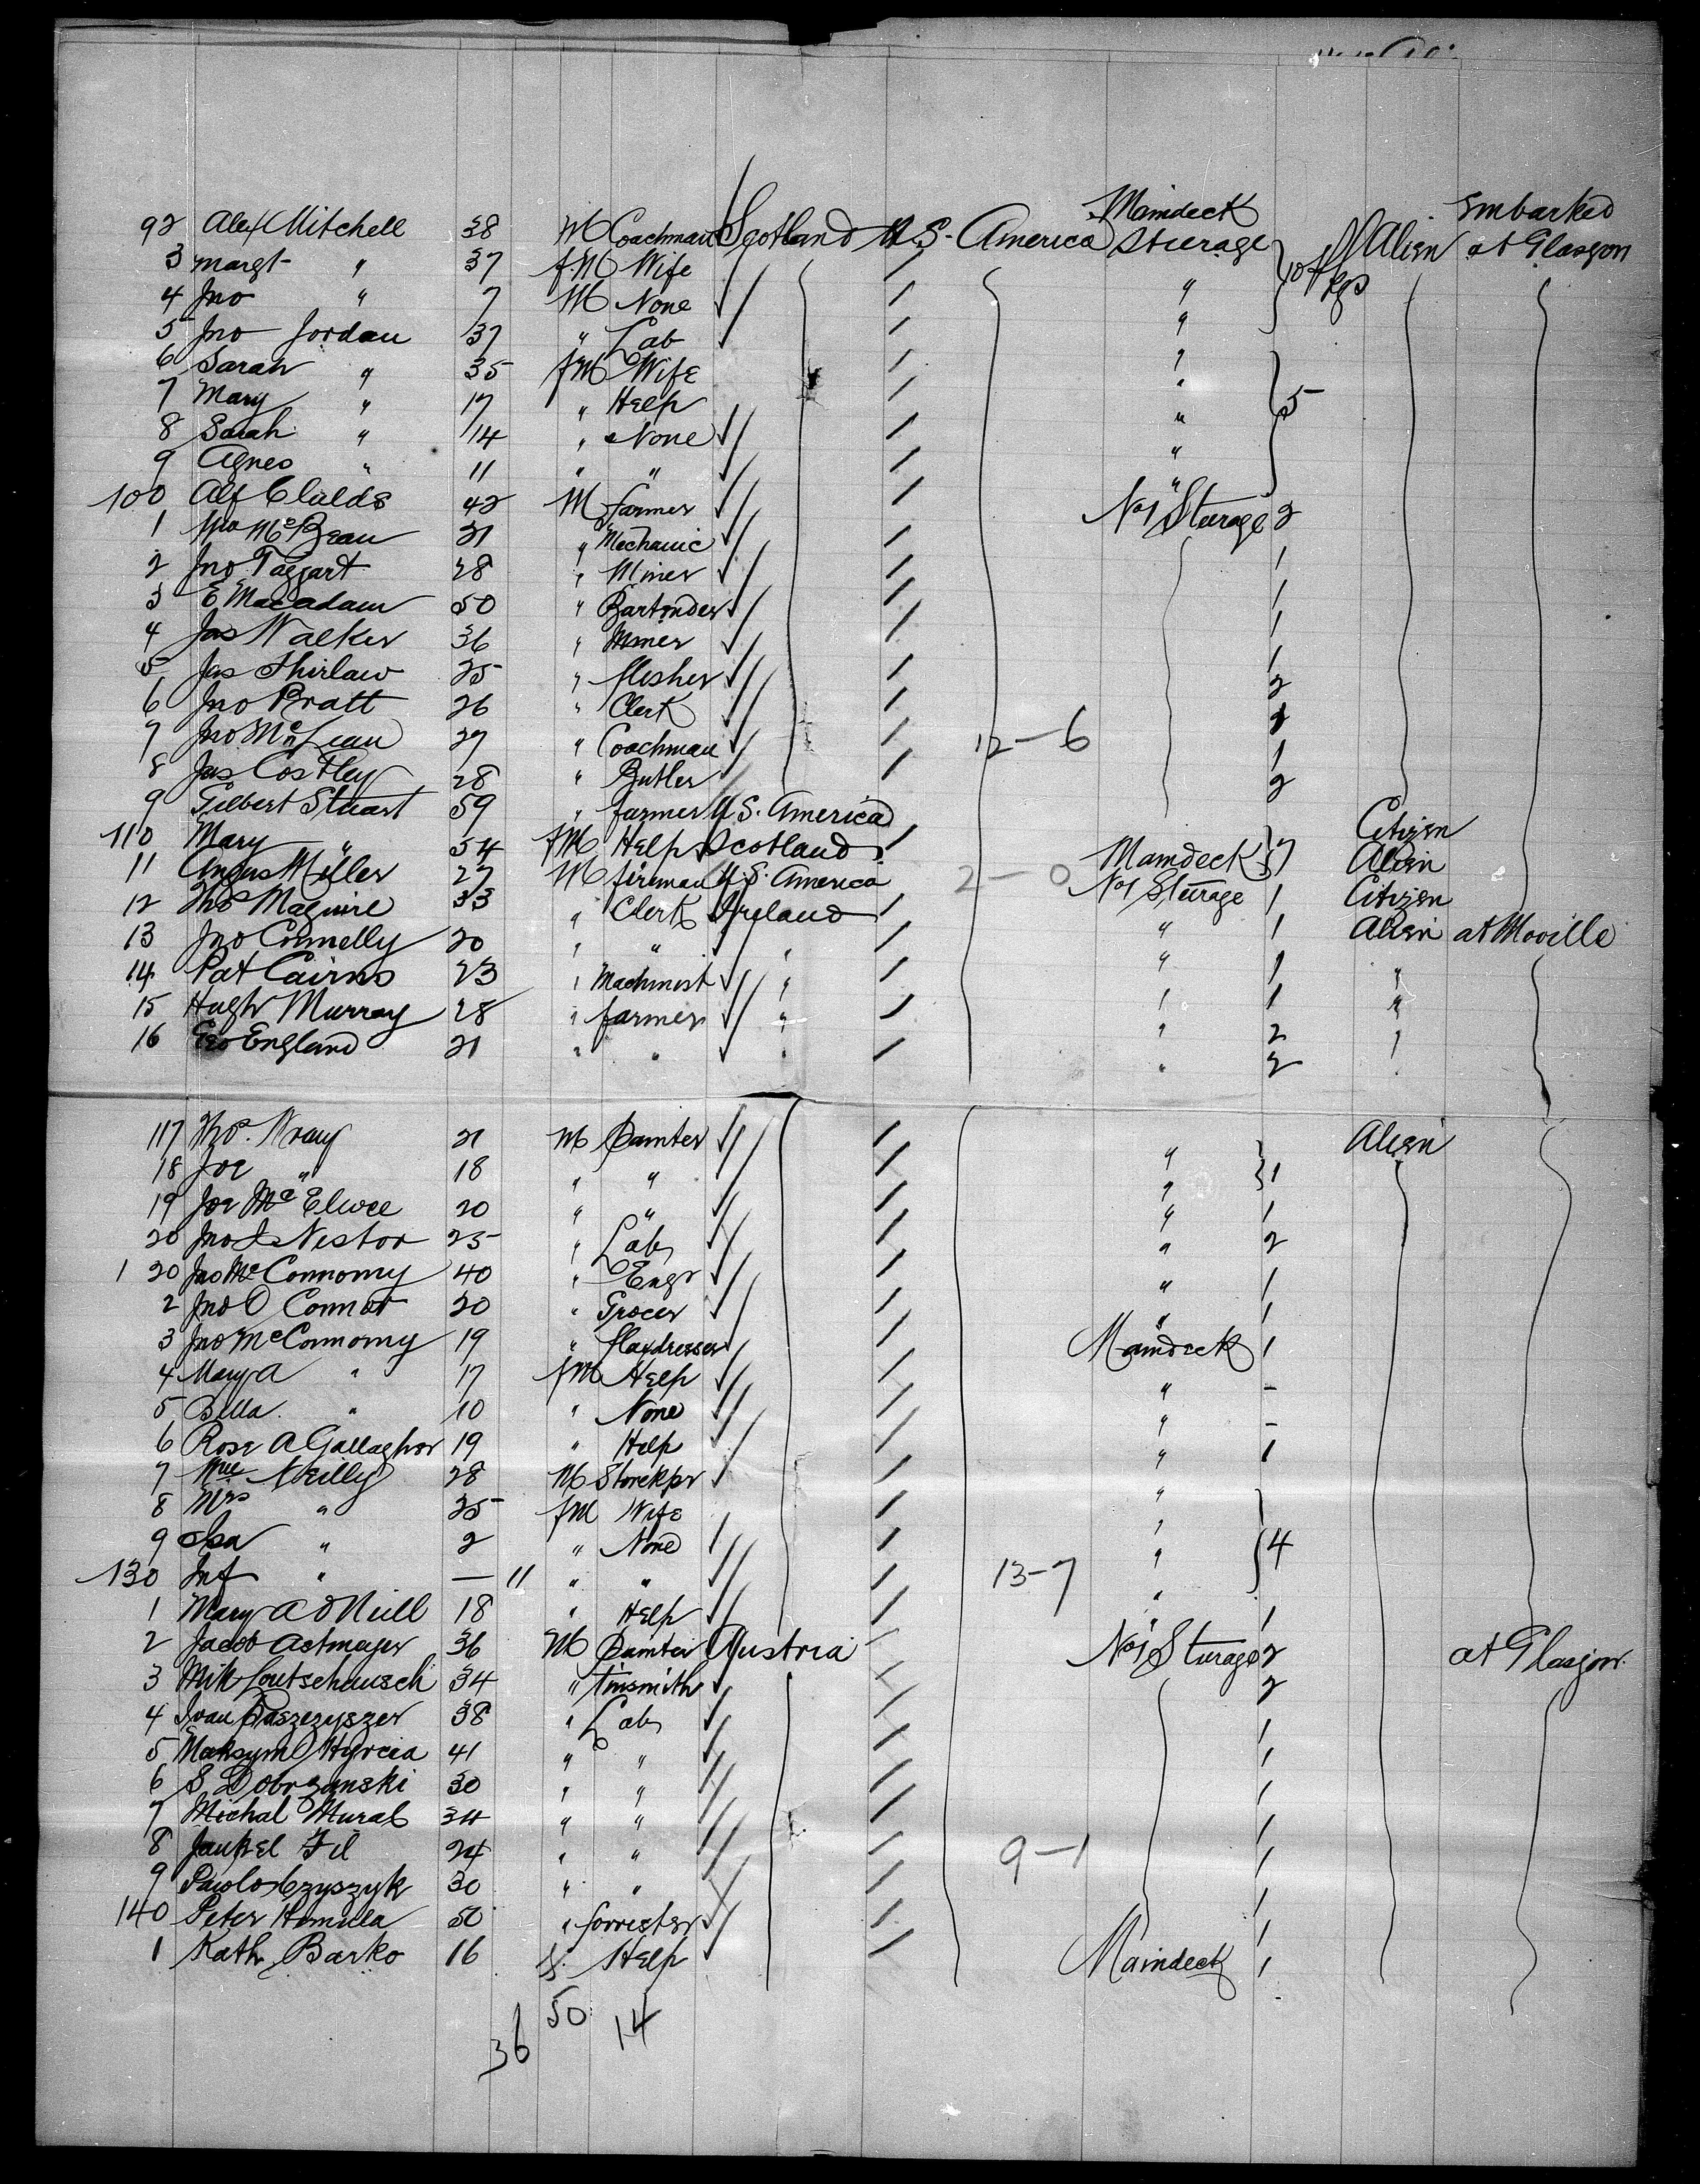 Embarked
Maindeck
92 Alex Mitchell 38 M Coachman Scotland U.S. America Steerage 10 Pkgs Alien at Glasgow
3 Margt " 37 fM Wife "
4 Jno " 7 M None "
5 Jno Jordan 37 " Lab "
6 Sarah " 35 fM Wife " 5
7 Mary " 17 " Help "
8 Sarah " 14 " None "
9 Agnes " 11 " " "
100 Alf Childs 42 M farmer No 1 Steerage 2
1 McBean 21 " Mechanic 1
2 Jno Taggart 28 " Miner 1
3 E Macadam 50 " Bartender 1
4 Jas Walker 36 " Miner 1
5 Jas Thirlaw 25 " flesher 2
6 Jno Pratt 26 " Clerk 2
7 Jno McLean 27 " Coachman 12-6 1
8 Jas Costley 28 " Butler 2
9 Gilbert Stuart 59 " farmer U.S. America Citizen
110 Mary " 54 fM Help Scotland Maindeck 7 Alien
11 Angus Miller 27 M fireman U.S. America 2-0 No 1 Steerage 1 Citizen
12 Thos Maguire 33 " Clerk Ireland " 1 Alien at Moville
13 Jno Connelly 20 " " " " 1 "
14 Pat Cairns 23 " Machinist " " 1 "
15 Hugh Murray 28 " farmer " " 2 "
16 Geo England 21 " " " " 2
117 Thos. Wray 21 M Painter " Alien
18 Joe " 18 " " " 1
19 Joe McElwee 20 " " " 1
20 Jno J Nestor 25 " Lab " 2
1 20 Jas McConnomy 40 " Engr " 1
2 Jno O Connor 20 " Grocer " 1
3 Jno McConnomy 19 " flaxdresser Maindeck 1
4 Mary A " 17 fM Help " -
5 Bella " 10 " None " -
6 Rose A Gallagher 19 " Help " 1
7 Wm Neilly 28 M Storekpr "
8 Mrs " 25 fM Wife "
9 Isa " 2 " None " 4
130 Inf " — 11 " " 13-7 "
1 Mary A O Neill 18 " Help " 1
2 Jacob Actmayer 36 M Painter Austria No 1 Steerage 2 at Glasgow.
3 Mik Loutschausch 34 " Tinsmith 2
4 Ivan Paszezyszer 38 " Lab 1
5 Maksym Hyrcia 41 " " 1
6 S Dobrzanski 30 " " 1
7 Michal Mural 34 " " 1
8 Jankel Fil 24 " " 9-1 1
9 Pawlo Czyszyk 30 " " 1
140 Peter Homula 50 " forrester 1
1 Kath Barko 16 f. Help Maindeck 1
36 50 14